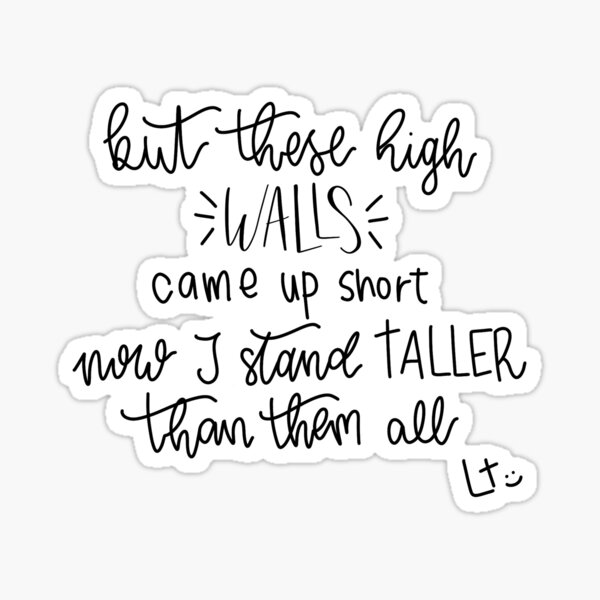 but these high
WALLS
came up short
now I stand TALLER
than them all
Lt :)